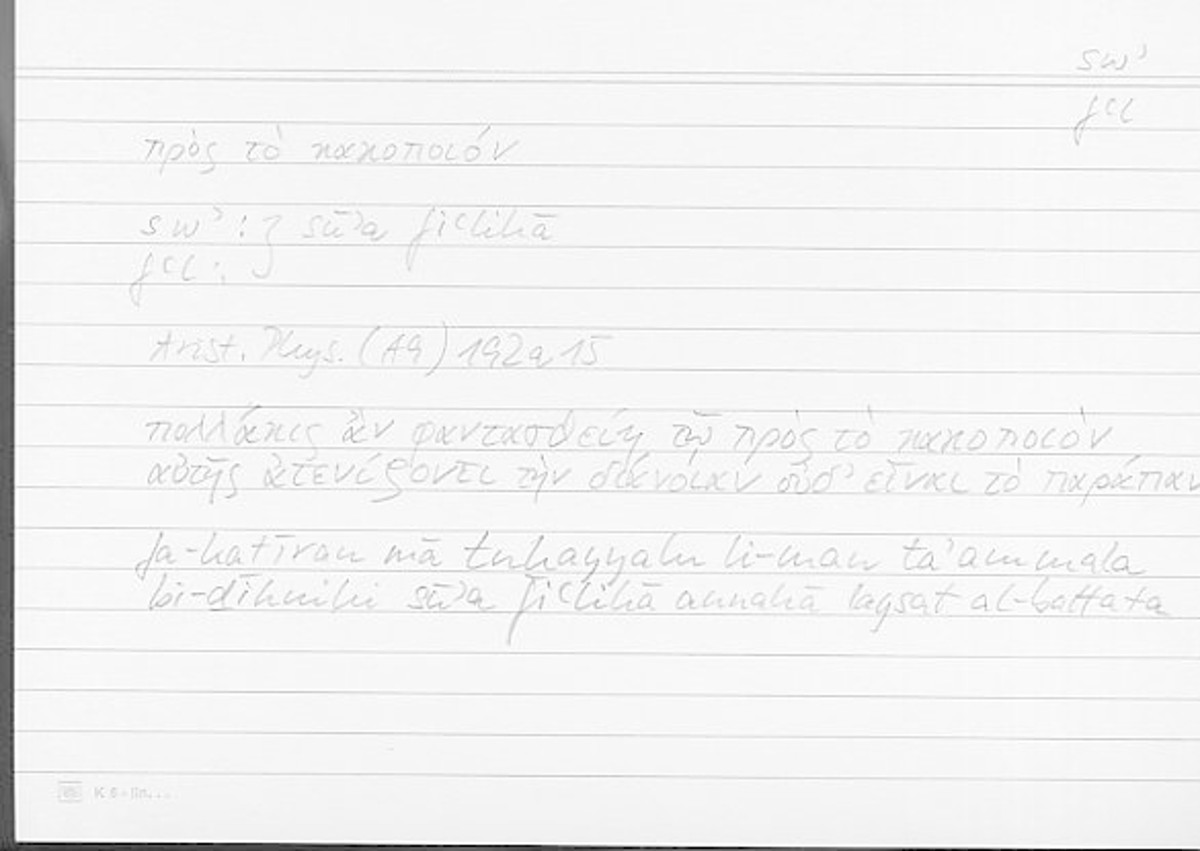 swʾ
fʿl
πρὸς τὸ κακοποιόν
swʾ : } sūʾa fiʿlihā
fʿl :
Arist. Phys. (A9) 192a15
πολλάκις ἂν φαντασθείη τῷ πρὸς τὸ κακοποιὸν
αὐτῆς ἀτενίζοντι τὴν διάνοιαν οὐδ' εἶναι τὸ παράπαν
fa-katīran mā tuhayyalu li-man ta'ammala
bi-dihnihi sūʾa fiʿlihā annahā laysat al-battata